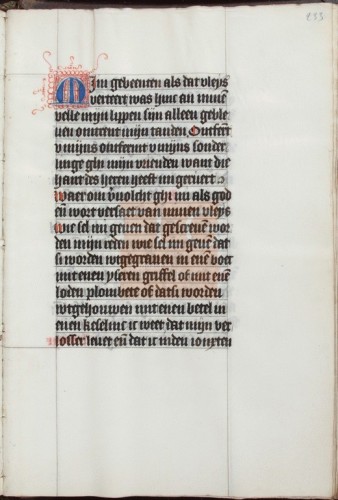 213
Mijn gebeenten als dat vleys
verteert was hinc an minē
velle mijn lippen sijn alleen geble
uen omtrent mijn tanden. Ontfert
v mijns ontfermt v mijns sonder
linge ghi mijn vrienden want die
hant des heren heeft mi geruert
Waer om vuolcht ghi mi als god
eñ wort versaet van minen vleys
Wie sel mi geuen dat gescreuē wor
den mijn reden wie sel mi geuē dat
si worden wtgegrauen in enē boec
mit enen yseren griffel of mit enē
loden plomhete of datsi worden
wtgehouwen mit enen betel in
enen keselinc ic weet dat mijn ver
losser leuet eñ dat ic inden ioncxten